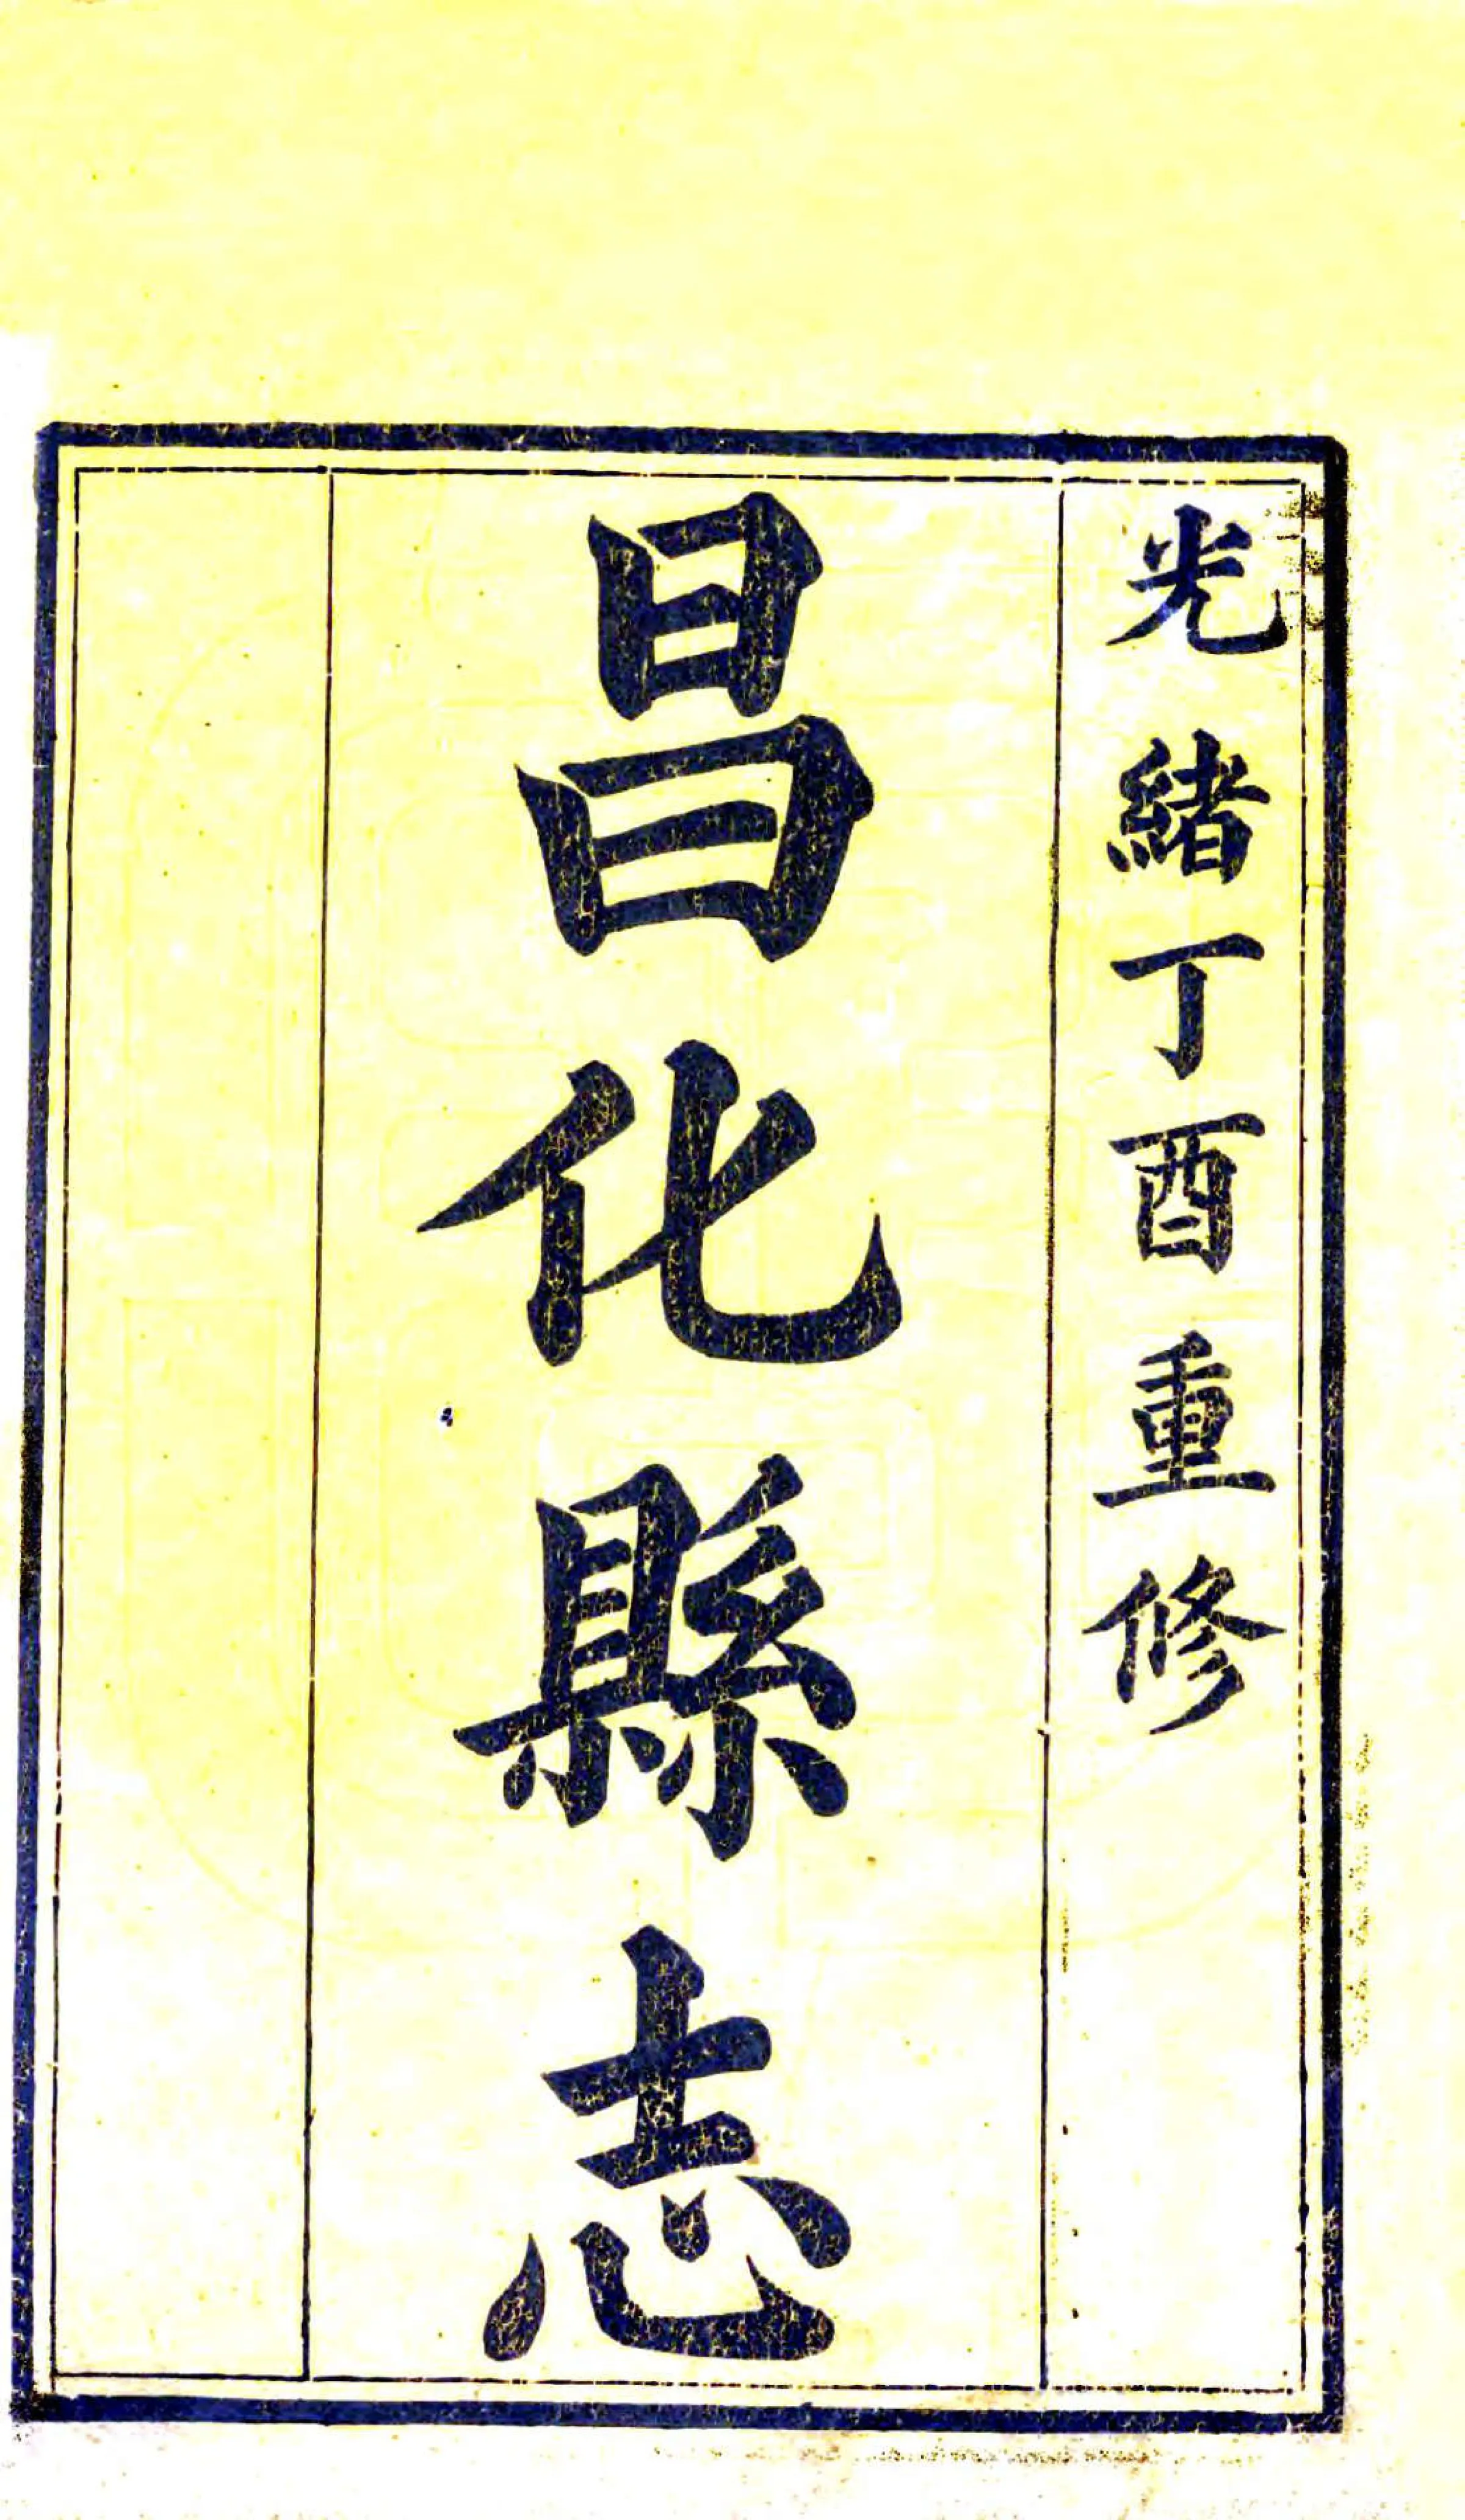 光緒丁酉重修
昌化縣志